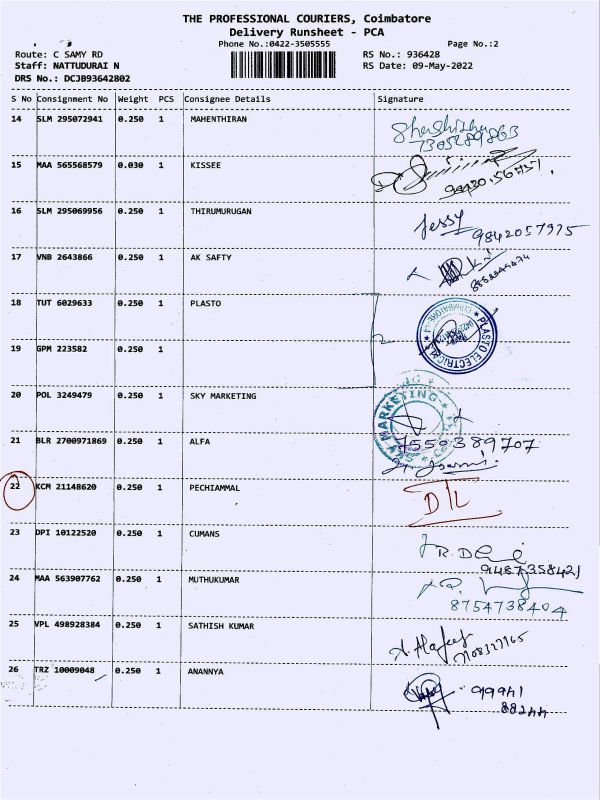 THE PROFESSIONAL COURIERS, Coimbatore
Delivery Runsheet - PCA
Phone No.:0422-3505555
Page No.:2
Route: C SAMY RD
RS No.: 936428
Staff: NATTUDURAI N
RS Date: 09-May-2022
DRS No.: DCJB93642802
S No Consignment No Weight PCS Consignee Details Signature
14 SLM 295072941 0.250 1 MAHENTHIRAN
15 MAA 565568579 0.030 1 KISSEE
16 SLM 295069956 0.250 1 THIRUMURUGAN Jessy
9842057975
17 VNB 2643866 0.250 1 AK SAFTY
18 TUT 6029633 0.250 1 PLASTO
PLASTO ELECTRICAL
COIMBATORE
19 GPM 223582 0.250 1
20 POL 3249479 0.250 1 SKY MARKETING
SKY MARKETING
21 BLR 2700971869 0.250 1 ALFA 7550389707
22 KCM 21148620 0.250 1 PECHIAMMAL D/L
23 DPI 10122520 0.250 1 CUMANS
9487358421
24 MAA 563907762 0.250 1 MUTHUKUMAR
8754738404
25 VPL 498928384 0.250 1 SATHISH KUMAR
26 TRZ 10009048 0.250 1 ANANNYA 919941
88244